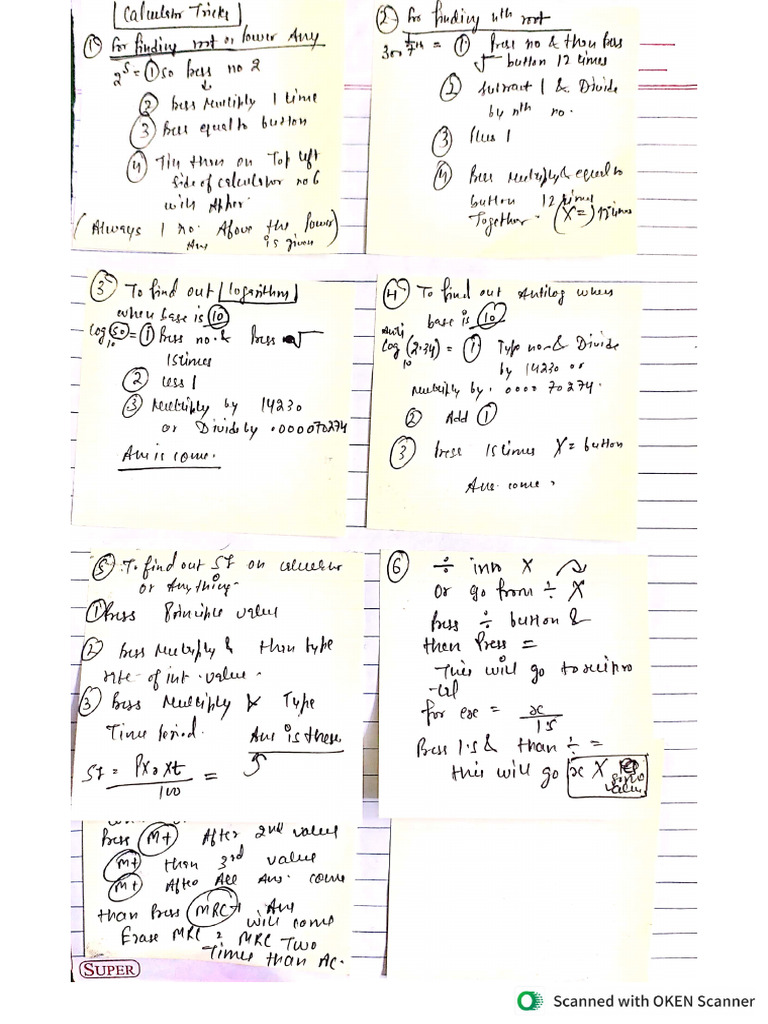 Calculator Tricks
① For finding root or power Any
2⁵ = ① So Press no 2
② Press Multiply 1 time
③ Press equal to button
④ Tin then on Top left
side of calculator no 6
with
(Always 1 no. Above the Power)
Ans is given
② For finding nth root
300 1/7th = ① Press no & then Press
√ button 12 times
② Subtract 1 & Divide
by nth no.
③ Plus 1
④ Press Multiply & equal to
button 12 times
Together. (X=) 12 times
③ To find out Logarithm
when base is 10
log₁₀(50) = ① Press no. & Press √
15 times
② Less 1
③ Multiply by 14230
or Divide by .000070274
Ans is come.
④ To find out Antilog when
base is 10
Anti
log₁₀(2.34) = ① Type no. & Divide
by 14230 or
Multiply by .0000 70274.
② Add ①
③ Press 15 times X = button
Ans. come.
⑤ To find out SI on calculator
or Anything.
① Press Principle value
② Press Multiply & than type
rate of int. value.
③ Press Multiply & Type
Time period. Ans is there
SI = PXrXt / 100 =
⑥ ÷ into X
Or go from ÷ X
Press ÷ button &
then Press =
This will go to recipro
-cal
for ex = x / 1.5
Press 1.5 & than ÷ =
this will go x X
value
Press M+ After 2nd value
M+ then 3rd value
M+ After All Ans. come
than Press MRC Ans
will come
Erase MRC = MRC Two
Times than AC.
SUPER
Scanned with OKEN Scanner